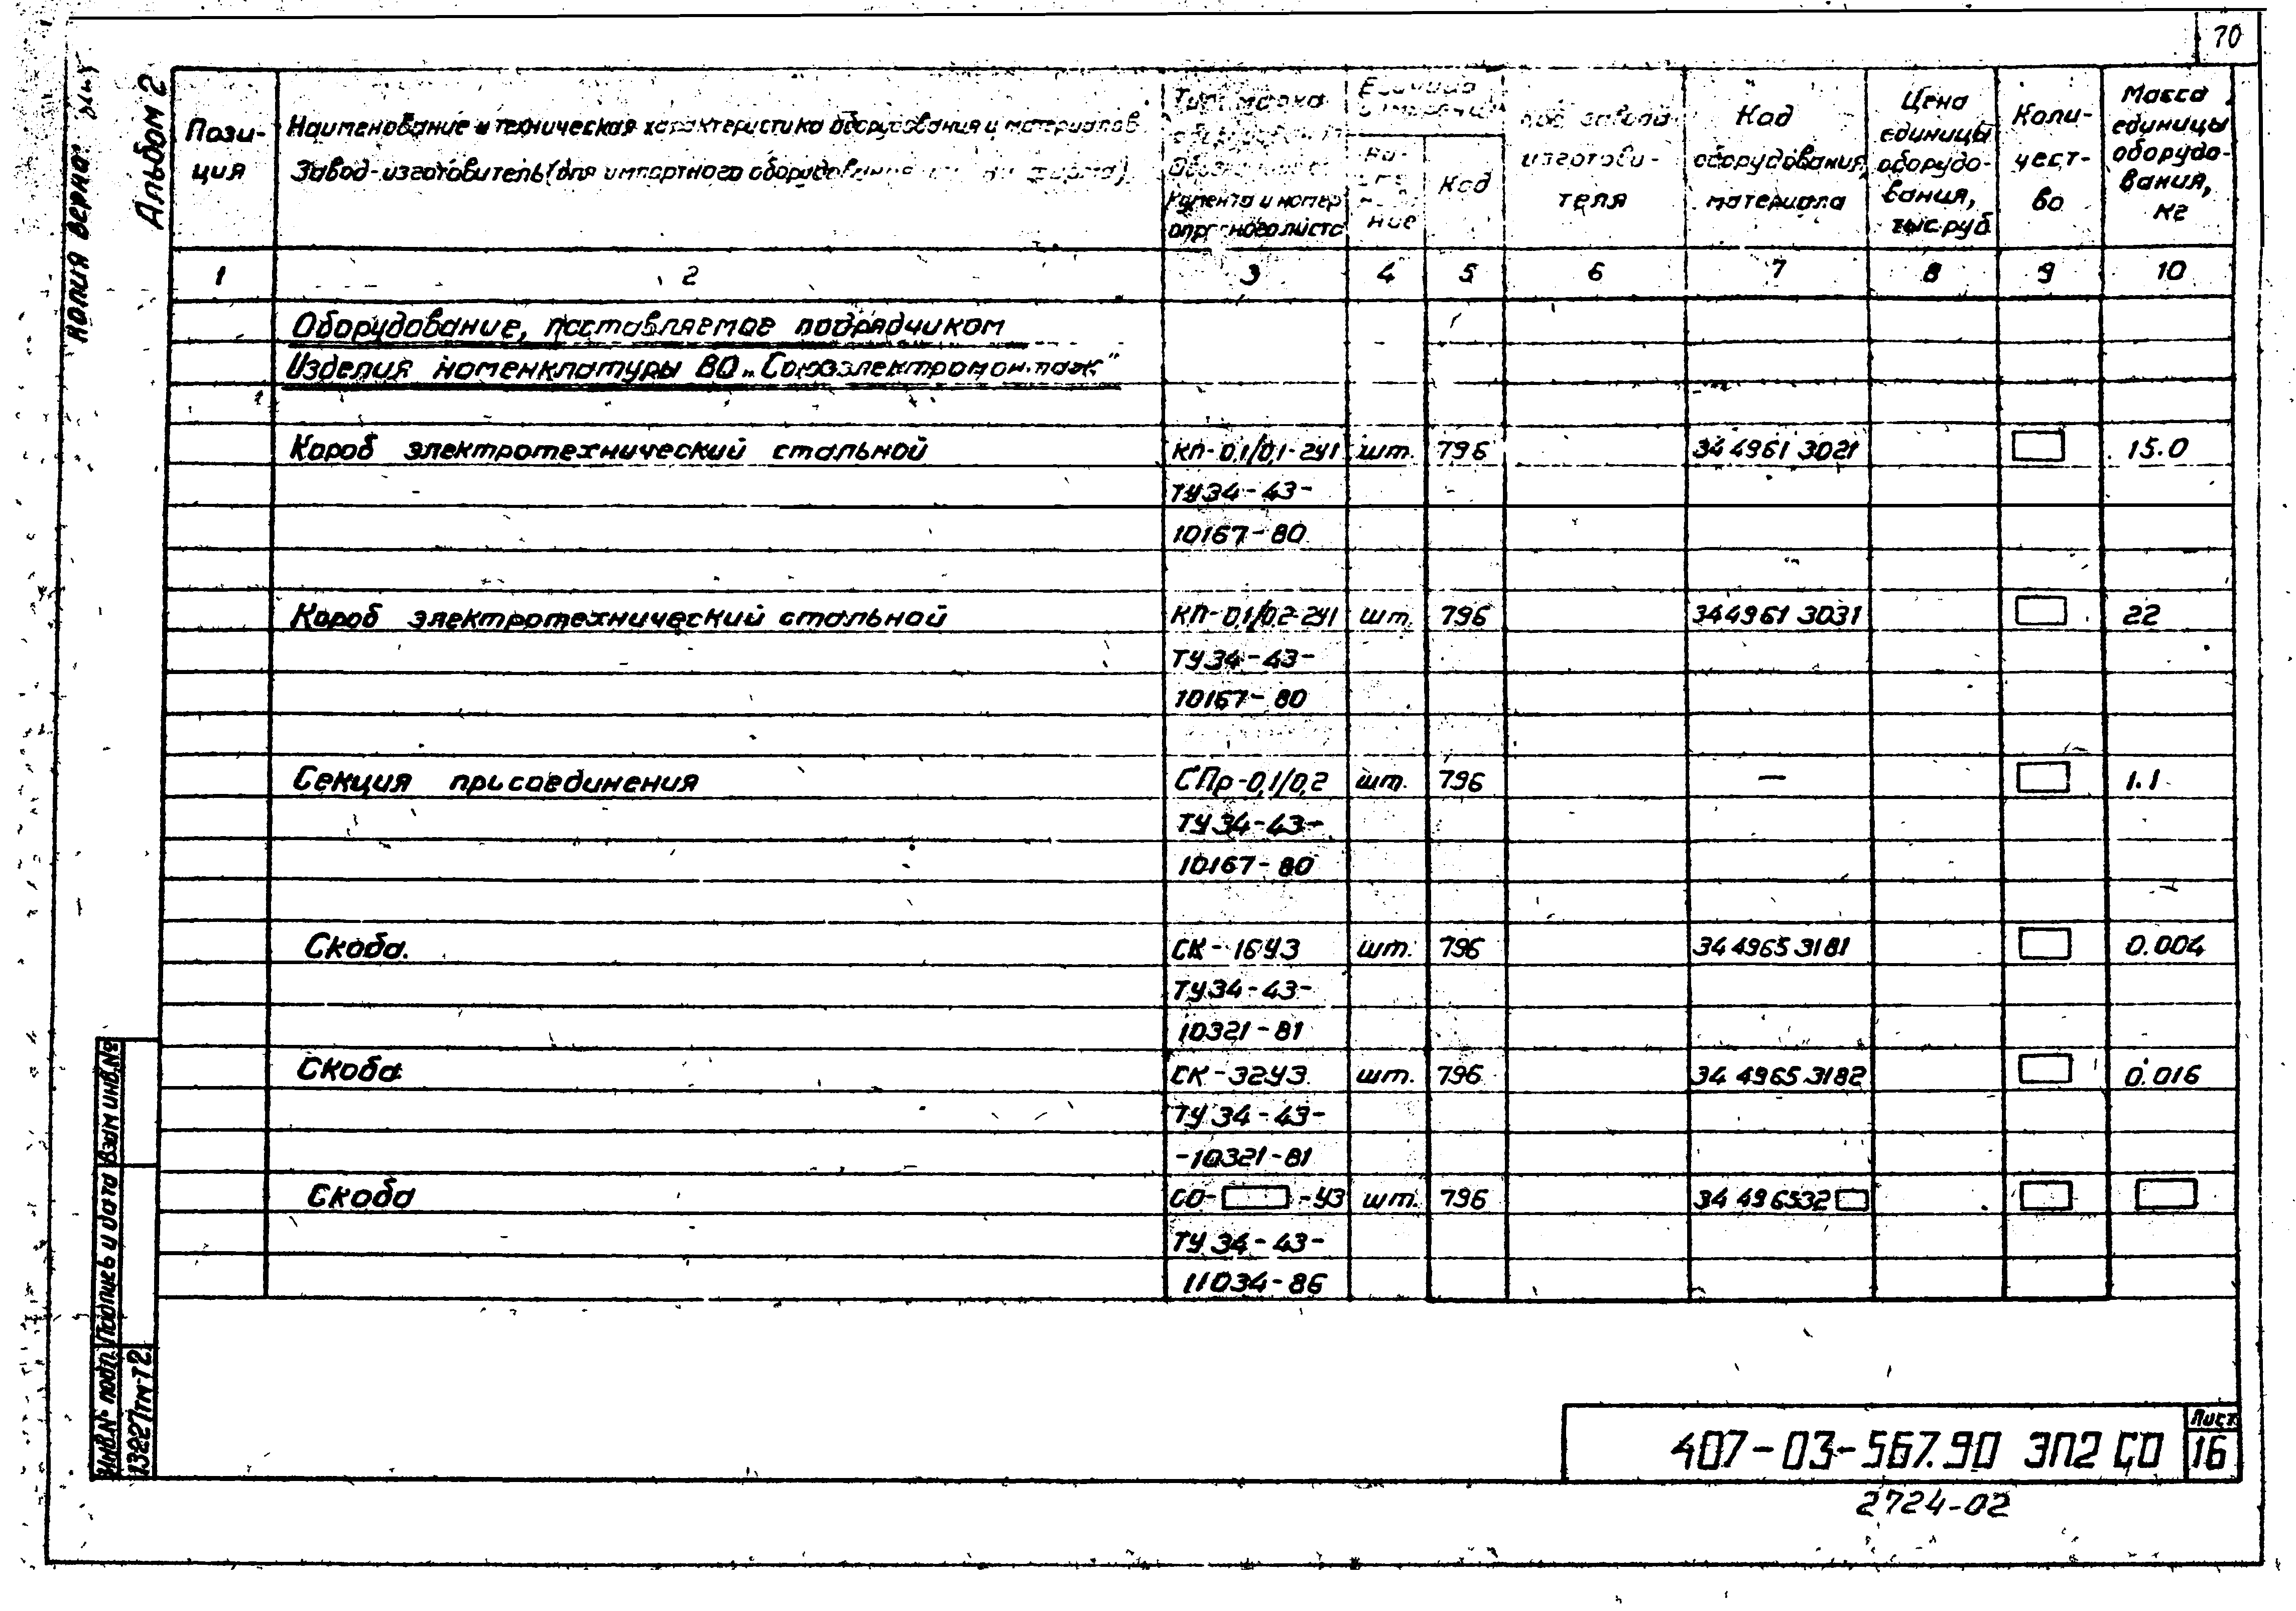 70
Копия верна:
Альбом 2
Пози-
ция
Наименование и техническая характеристика оборудования и материалов.
Завод-изготовитель (для импортного оборудования
Тип, марка
кумента и номер
опросного листа
Единица
ние
Код
код завода
изготови-
теля
Код
оборудования,
материала
Цена
единицы
оборудо-
вания,
тыс.руб
Коли-
чест-
во
Масса
единицы
оборудо-
вания,
кг
1 2 3 4 5 6 7 8 9 10
Оборудование, поставляемое подрядчиком
Изделия номенклатуры ВО „Союзэлектромонтаж"
Короб электротехнический стальной КП-0,1/0,1-2У1 шт. 796 34 4961 3021 15.0
ТУ34-43-
10167-80
Короб электротехнический стальной КП-0,1/0,2-2У1 шт. 796 34 4961 3031 22
ТУ34-43-
10167-80
Секция присоединения СПр-0,1/0,2 шт. 796 — 1.1
ТУ34-43-
10167-80
Скоба. СК-16У3 шт. 796 34 4965 3181 0.004
ТУ34-43-
10321-81
Скоба СК-32У3 шт. 796 34 4965 3182 0.016
ТУ 34-43-
-10321-81
Скоба СО- -У3 шт. 796 34 496532
ТУ 34-43-
11034-86
Взам инв.№
Подпись и дата
Инв.№ подл.
13227тм-т2
407-03-567.90 ЭП2 СО
Лист
16
2724-02